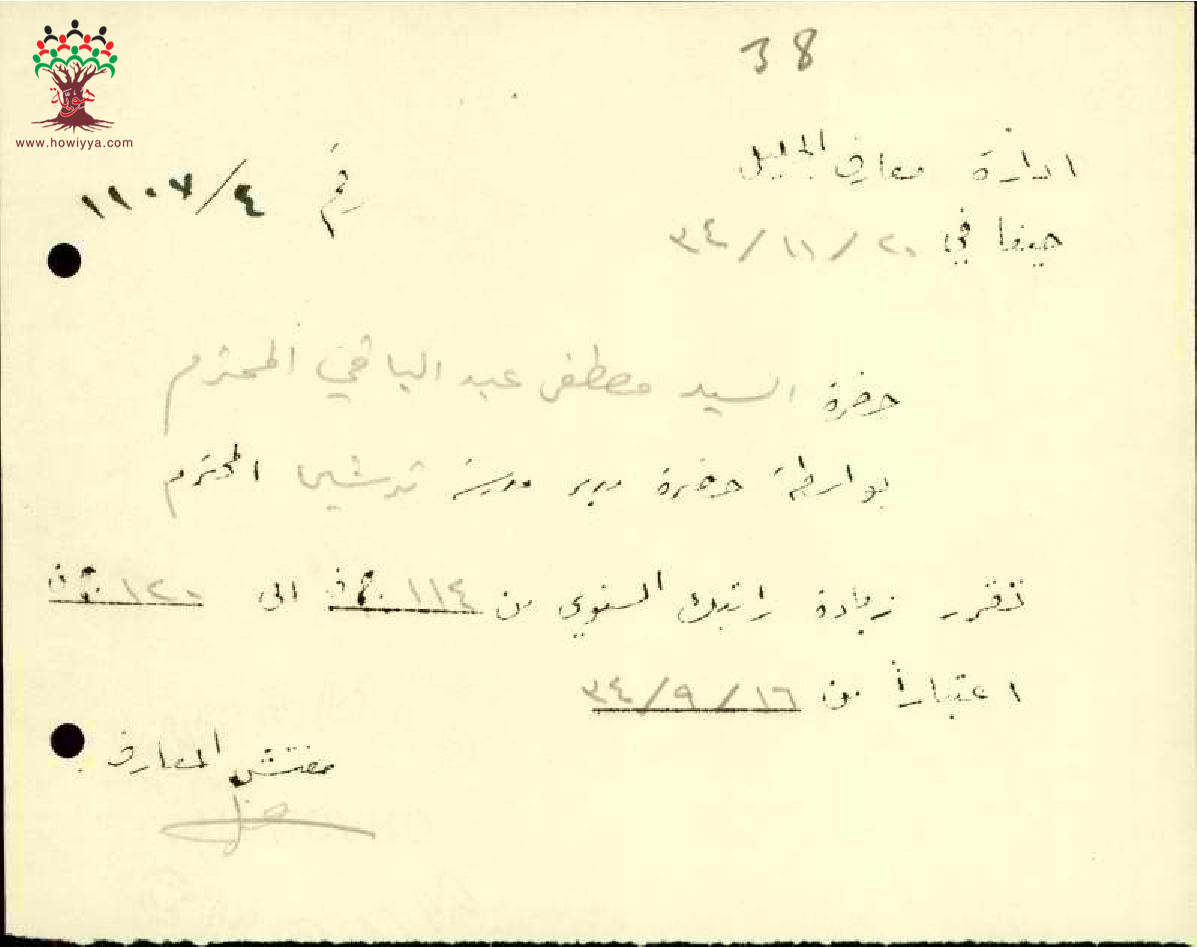 38
هوية
www.howiyya.com
ادارة معارف الجليل
رقم ٤/١١٠٧
حيفا في ٢٠/١١/٣٤
حضرة السيد مصطفى عبد الباقي المحترم
بواسطة حضرة مدير مدرسة ترشيحا المحترم
تقرر زيادة راتبك السنوي من ١١٤ الى ١٢٠
اعتباراً من ١٦/٩/٣٤
مفتش المعارف